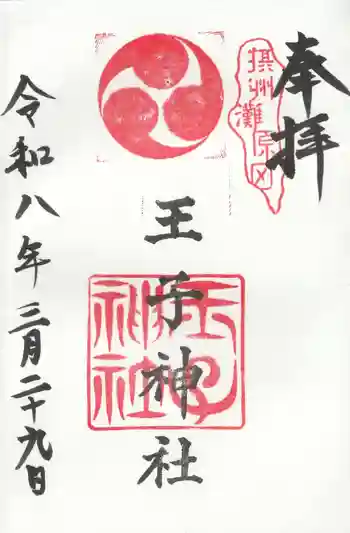 奉拝
摂州灘原田
王子神社
王子神社
令和八年三月二十九日